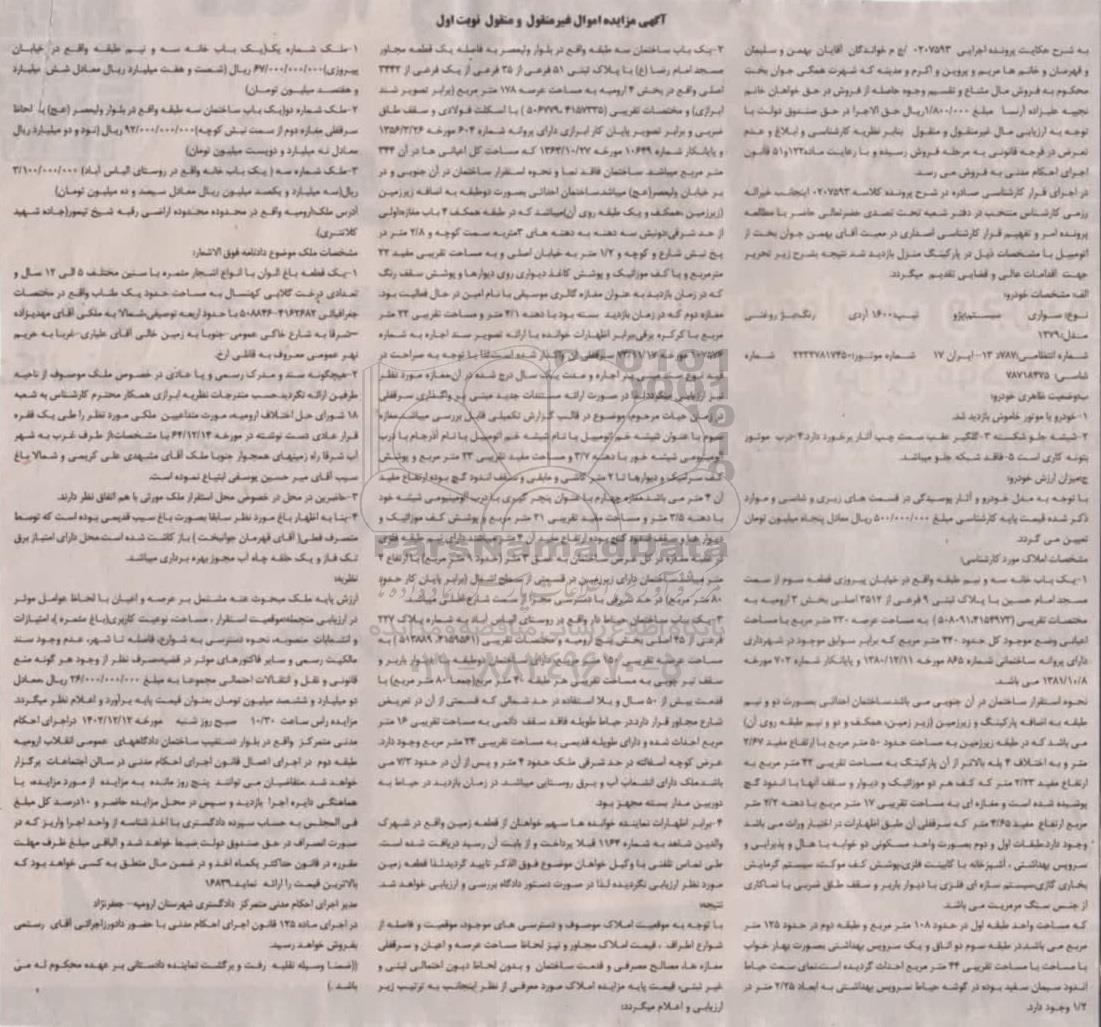 آگهی مزایده اموال غیرمنقول و منقول نوبت اول
به شرح حکایت پرونده اجرایی ۰۲۰۷۵۹۳ /ج م خواندگان آقایان بهمن و سلیمان
و قهرمان و خانم ها مریم و پروین و اکرم و مدینه که شهرت همگی جوان بخت
محکوم به فروش مال مشاع و تقسیم وجوه حاصله از فروش در حق خواهان خانم
نجیبه علیزاده آرسا مبلغ ۱/۸۰۰/۰۰۰ریال حق الاجرا در حق صندوق دولت با
توجه به ارزیابی مال غیرمنقول و منقول بنابر نظریه کارشناسی و ابلاغ و عدم
تعرض در فرجه قانونی به مرحله فروش رسیده و با رعایت ماده۱۲۲و۵۱ قانون
اجرای احکام مدنی به فروش می رسد.
در اجرای قرار کارشناسی صادره در شرح پرونده کلاسه ۰۲۰۷۵۹۳ اینجانب خیراله
رزمی کارشناس منتخب در دفتر شعبه تحت تصدی حضرتعالی حاضر با مطالعه
پرونده امر و تفهیم قرار کارشناسی اصداری در معیت آقای بهمن جوان بخت از
اتومبیل با مشخصات ذیل در پارکینگ منزل بازدید شد نتیجه بشرح زیر تحریر
جهت اقدامات عالی و قضایی تقدیم میگردد.
الف: مشخصات خودرو:
نوع:سواری سیستم:پژو تیپ:۱۶۰۰ آردی رنگ:بژ روغنی
مدل:۱۳۷۹
شماره انتظامی:۷۸۷د ۱۳– ایران ۱۷ شماره موتور:۲۲۳۲۷۸۱۷۴۵۰ شماره
شاسی: ۷۸۷۱۸۴۷۵
ب:وضعیت ظاهری خودرو:
۱-خودرو با موتور خاموش بازدید شد.
۲-شیشه جلو شکسته ۳-گلگیر عقب سمت چپ آثار برخورد دارد.۴-درب موتور
بتونه کاری است ۵-فاقد شبکه جلو میباشد.
ج:میزان ارزش خودرو:
با توجه به مدل خودرو و آثار پوسیدگی در قسمت های زیری و شاسی و موارد
ذکر شده قیمت پایه کارشناسی مبلغ ۵۰۰/۰۰۰/۰۰۰ریال معادل پنجاه میلیون تومان
تعیین می گردد.
مشخصات املاک مورد کارشناسی:
۱-یک باب خانه سه و نیم طبقه واقع در خیابان پیروزی قطعه سوم از سمت
مسجد امام حسین با پلاک ثبتی ۹ فرعی از ۳۵۱۲ اصلی بخش ۳ ارومیه به
مختصات تقریبی (۵۰۸۰۹۱،۴۱۵۴۹۷۳) به مساحت عرصه ۲۳۰ متر مربع با مساحت
اعیانی وضع موجود کل حدود ۴۲۰ متر مربع که برابر سوابق موجود در شهرداری
دارای پروانه ساختمانی شماره ۸۶۵ مورخه ۱۳۸۰/۱۲/۱۱ و پایانکار شماره ۷۰۲ مورخه
۱۳۸۱/۱۰/۸ می باشد.
نحوه استقرار ساختمان در آن جنوبی می باشد.ساختمان احداثی بصورت دو و نیم
طبقه به اضافه پارکینگ و زیرزمین (زیر زمین، همکف و دو و نیم طبقه روی آن)
می باشد که در طبقه زیرزمین به مساحت حدود ۵۰ متر مربع با ارتفاع مفید ۲/۶۷
متر و به اختلاف ۴ پله بالاتر از آن پارکینگ به مساحت تقریبی ۴۲ متر مربع به
ارتفاع مفید ۲/۲۳ متر که کف هر دو موزائیک و دیوار و سقف آنها با اندود گچ
پوشیده شده است و مغازه ای به مساحت تقریبی ۱۷ متر مربع با دهنه ۲/۲ متر
مربع ارتفاع مفید ۴/۶۵ متر که سرقفلی آن طبق اظهارات در اختیار وراث می باشد
وجود دارد.طبقات اول و دوم بصورت واحد مسکونی دو خوابه با هال و پذیرایی و
سرویس بهداشتی ، آشپزخانه با کابینت فلزی،پوشش کف موکت، سیستم گرمایش
بخاری گازی،سیستم سازه ای فلزی با دیوار باربر و سقف طاق ضربی با نماکاری
از جنس سنگ مرمریت می باشد.
که مساحت واحد طبقه اول در حدود ۱۰۸ متر مربع و طبقه دوم در حدود ۱۲۵ متر
مربع می باشد.در طبقه سوم دو اتاق و یک سرویس بهداشتی بصورت بهار خواب
با مساحت با مساحت تقریبی ۴۴ متر مربع احداث گردیده است.نمای سمت حیاط
اندود سیمان سفید بوده در گوشه حیاط سرویس بهداشتی به ابعاد ۲/۲۵ متر در
۱/۲ وجود دارد.
۲-یک باب ساختمان سه طبقه واقع در بلوار ولیعصر به فاصله یک قطعه مجاور
مسجد امام رضا (ع) با پلاک ثبتی ۵۱ فرعی از ۳۵ فرعی از یک فرعی از ۳۳۴۲
اصلی واقع در بخش ۴ ارومیه به مساحت عرصه ۱۷۸ متر مربع (برابر تصویر سند
ابرازی) و مختصات تقریبی (۴۱۵۷۳۳۵ ،۵۰۶۷۷۹ ) با اسکلت فولادی و سقف طاق
ضربی و برابر تصویر پایان کار ابرازی دارای پروانه شماره ۶۰۴ مورخه ۱۳۵۶/۲/۲۶
و پایانکار شماره ۱۰۶۴۹ مورخه ۱۳۶۳/۱۰/۲۷ که مساحت کل اعیانی ها در آن ۳۴۴
متر مربع میباشد. ساختمان فاقد نما و نحوه استقرار ساختمان در آن جنوبی و در
بر خیابان ولیعصر(عج) میباشد.ساختمان احداثی بصورت دوطبقه به اضافه زیرزمین
(زیرزمین ،همکف و یک طبقه روی آن)میباشند که در طبقه همکف ۴ باب مغازه(اولی
از حد شرقی،دونبش سه دهنه به دهنه های ۳متربه سمت کوچه و ۲/۸ متر در
پخ نبش شارع و کوچه و ۱/۲ متر به خیابان اصلی و به مساحت تقریبی مفید ۲۲
مترمربع و با کف موزائیک و پوشش کاغذ دیواری روی دیوارها و پوشش سقف رنگ
که در زمان بازدید به عنوان مغازه گالری موسیقی با نام امین در حال فعالیت بود.
مغازه دوم که در زمان بازدید بسته بود با دهنه ۴/۱ متر و مساحت تقریبی ۲۲ متر
مربع با کرکره برقی،برابر اظهارات خوانده با ارائه تصویر سند اجاره به شماره
آن ۴ متر می باشد.مغازه چهارم با عنوان پنچر گیری با درب آلومینیومی شیشه خود
با دهنه ۳/۵ متر و مساحت مفید تقریبی ۲۱ متر مربع و پوشش کف موزائیک و
۳-یک باب ساختمان حیاط دار واقع در روستای الیاس آباد به شماره پلاک ۲۲۷
سقف تیر چوبی به مساحت تقریبی هر طبقه ۴۰ متر مربع(جمعا ۸۰ متر مربع) با
قدمت بیش از ۵۰ سال و بلا استفاده در حد شمالی که قسمتی از آن در تعریض
شارع مجاور قرار دارد.در حیاط طویله فاقد سقف دائمی به مساحت تقریبی ۱۶ متر
مربع احداث شده و دارای طویله قدیمی به مساحت تقریبی ۲۴ متر مربع وجود دارد.
عرض کوچه آسفالته در حد شرقی ملک حدود ۴ متر و پس از آن در حدود ۷/۲ می
باشد.ملک دارای انشعاب آب و برق روستایی میباشد. در زمان بازدید در حیاط به
دوربین مدار بسته مجهز بود.
۴-برابر اظهارات نماینده خوانده ها سهم خواهان از قطعه زمین واقع در شهرک
والدین شاهد به شماره ۱۱۶۲ قبلا پرداخت و از بابت آن رسید دریافت شده است.
طی تماس تلفنی با وکیل خواهان موضوع فوق الذکر تایید گردید.لذا قطعه زمین
مورد نظر ارزیابی نگردیده لذا در صورت دستور دادگاه بررسی و ارزیابی خواهد شد.
نتیجه:
با توجه به موقعیت املاک موصوف و دسترسی های موجود، موقعیت و فاصله از
شوارع اطراف ، قیمت املاک مجاور و نیز لحاظ مساحت عرصه و اعیان و سرقفلی
مغازه ها، مصالح مصرفی و قدمت ساختمان و بدون لحاظ دیون احتمالی ثبتی و
غیر ثبتی، قیمت پایه مزایده املاک مورد معرفی از نظر اینجانب به ترتیب زیر
ارزیابی و اعلام میگردد:
۱-ملک شماره یک(یک باب خانه سه و نیم طبقه واقع در خیابان
پیروزی)۶۷/۰۰۰/۰۰۰/۰۰۰ ریال (شصت و هفت میلیارد ریال معادل شش میلیارد
و هفتصد میلیون تومان)
۲-ملک شماره دو(یک باب ساختمان سه طبقه واقع در بلوار ولیعصر (عج)با لحاظ
سرقفلی مغازه دوم از سمت نبش کوچه)۹۲/۰۰۰/۰۰۰/۰۰۰ ریال (نود و دو میلیارد ریال
معادل نه میلیارد و دویست میلیون تومان)
۳-ملک شماره سه ( یک باب خانه واقع در روستای الیاس آباد) ۳/۱۰۰/۰۰۰/۰۰۰
ریال(سه میلیارد و یکصد میلیون ریال معادل سیصد و ده میلیون تومان)
آدرس ملک:ارومیه واقع در محدوده محدوده اراضی رقبه شیخ تیمور(جاده شهید
کلانتری).
مشخصات ملک موضوع دادنامه فوق الاشعار:
۱-یک قطعه باغ الوان با انواع اشجار مثمره با سنین مختلف ۵ الی ۱۲ سال و
تعدادی درخت گلابی کهنسال به مساحت حدود یک طناب واقع در مختصات
جغرافیائی ۴۱۶۲۶۸۲–۵۰۸۸۳۶ با حدود اربعه توصیفی،شمالا به ملکی آقای مهدیزاده
–شرقا به شارع خاکی عمومی–جنوبا به زمین خالی آقای علیاری–غربا به حریم
نهر عمومی معروف به قاتلی ارخ.
۲-هیچگونه سند و مدرک رسمی و یا عادی در خصوص ملک موصوف از ناحیه
طرفین ارائه نگردید.حسب مندرجات نظریه ابرازی همکار محترم کارشناس به شعبه
۱۸ شورای حل اختلاف ارومیه، مورث متداعیین ملکی مورد نظر را طی یک فقره
قرار عادی دست نوشته در مورخه ۶۴/۱۲/۱۴ با مشخصات:از طرف غرب به شهر
آب شرقا راه زمینهای همجوار جنوبا ملک آقای مشهدی علی کریمی و شمالا باغ
سیب آقای میر حسین یوسفی ابتیاع نموده است.
۳-حاضرین در محل در خصوص محل استقرار ملک مورثی با هم اتفاق نظر دارند.
۴-بنا به اظهار باغ مورد نظر سابقا بصورت باغ سیب قدیمی بوده است که توسط
متصرف فعلی( آقای قهرمان جوانبخت ) باز کاشت شده است.محل دارای امتیاز برق
تک فاز و یک حلقه چاه آب مجوز بهره برداری میباشد.
نظریه:
ارزش پایه ملک مبحوث عنه مشتمل بر عرصه و اعیان با لحاظ عوامل موثر
در ارزیابی منجمله:موقعیت استقرار ، مساحت، نوعیت کاربری(باغ مثمره )، امتیازات
و انشعابات منصوبه، نحوه دسترسی به شوارع، فاصله تا شهر، عدم وجود سند
مالکیت رسمی و سایر فاکتورهای موثر در قضیه،صرف نظر از وجود هر گونه منع
قانونی و نقل و انتقالات احتمالی مجموعا به مبلغ ۲۶/۰۰۰/۰۰۰/۰۰۰ ریال ،معادل
دو میلیارد و ششصد میلیون تومان بعنوان قیمت پایه برآورد و اعلام نظر میگردد.
مزایده راس ساعت ۱۰/۳۰ صبح روز شنبه مورخه ۱۴۰۲/۱۲/۱۲ دراجرای احکام
مدنی متمرکز واقع در بلوار دستغیب ساختمان دادگاههای عمومی انقلاب ارومیه
طبقه دوم در اجرای اعمال قانون اجرای احکام مدنی در سالن اجتماعات برگزار
خواهد شد .متقاضیان می توانند پنج روز مانده به مزایده از مورد مزایده، با
هماهنگی دایره اجرا بازدید و سپس در محل مزایده حاضر و ۱۰درصد کل مبلغ
فی المجلس به حساب سپرده دادگستری با اخذ شناسه از واحد اجرا واریز که در
صورت انصراف در حق صندوق دولت ضبط خواهد شد و الباقی مبلغ ظرف مهلت
مقرره در قانون حداکثر یکماه اخذ و در ضمن مال متعلق به کسی خواهد بود که
بالاترین قیمت را ارائه نماید.۱۶۸۳۹
مدیر اجرای احکام مدنی متمرکز دادگستری شهرستان ارومیه– جعفرنژاد
در اجرای ماده ۱۲۵ قانون اجرای احکام مدنی با حضور دادورزاجرائی آقای رستمی
بفروش خواهد رسید.
((ضمنا وسیله نقلیه رفت و برگشت نماینده دادستانی بر عهده محکوم له می
باشد.)
ParsNamadData